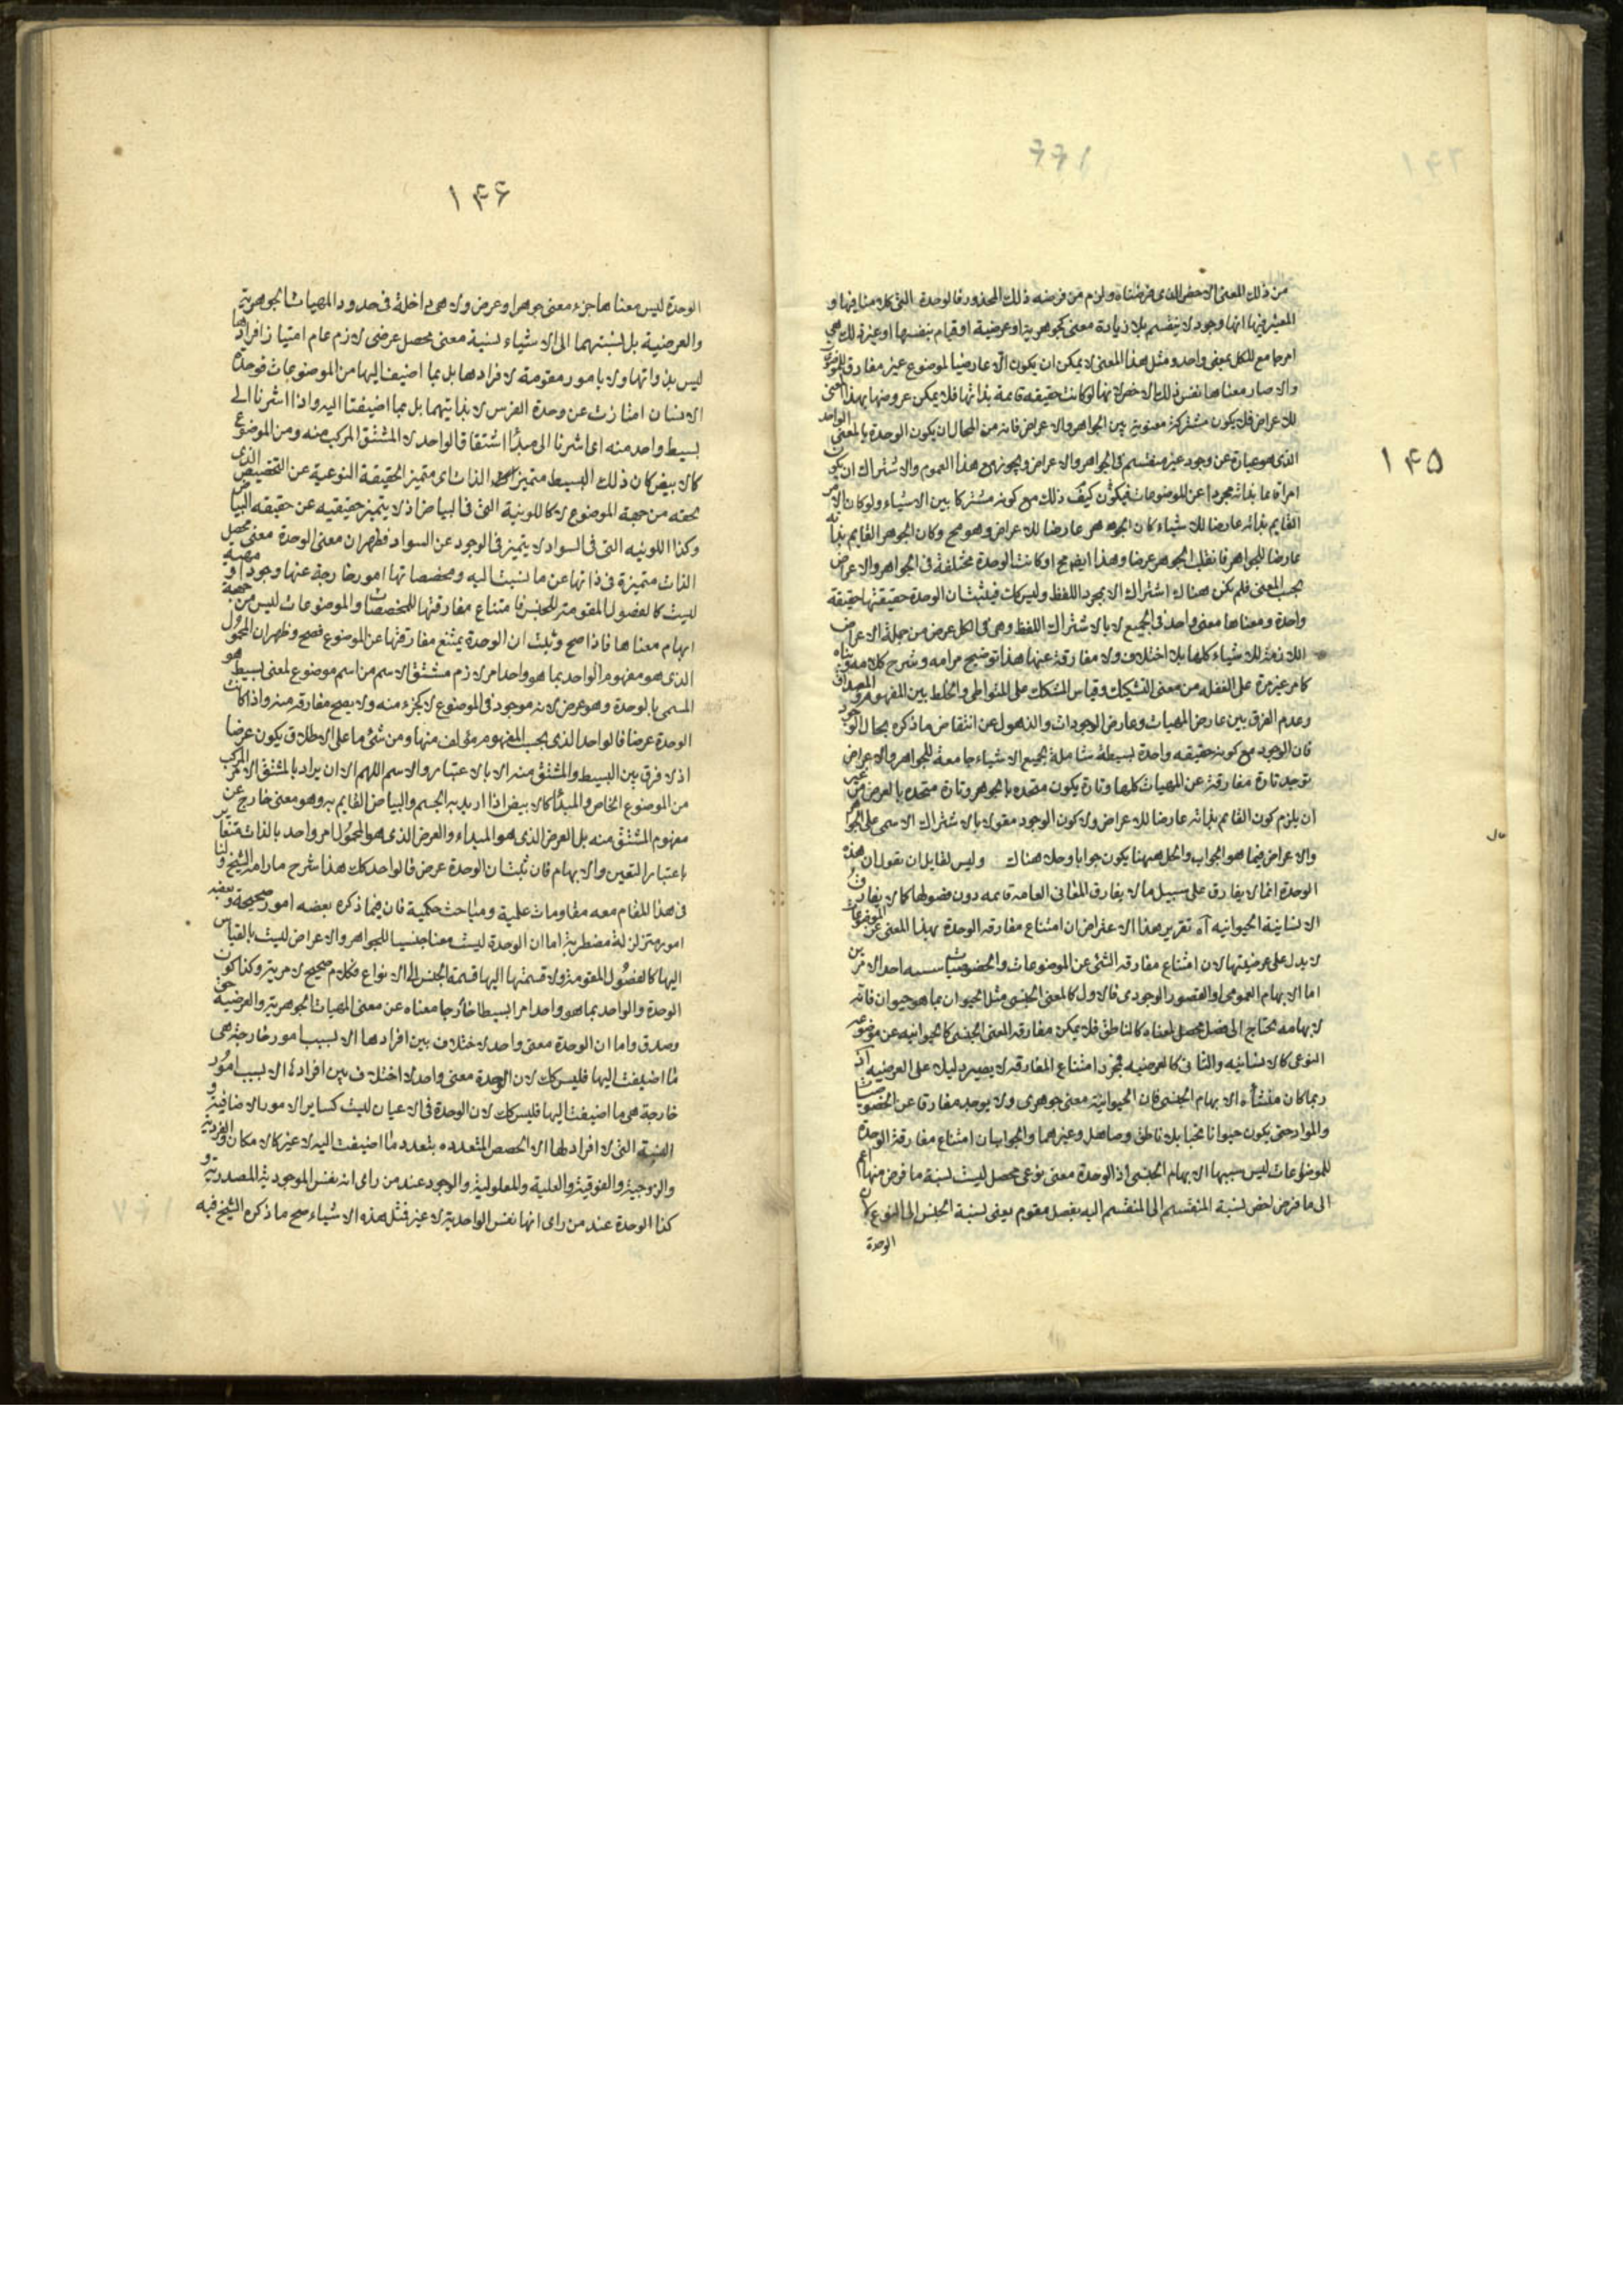 ١٤٥
من ذلك المعنى الاخص الذى فرضناه ولزم من فرضه ذلك المحذور فالوحدة التى كلامنا فيها و
المعتبر فيها انها وجود لا ينقسم بلا زيادة معنى كجوهرية او عرضية او قيام بنفسها او غير ذلك هى
امر جامع للكل بمعنى واحد ومثل هذا المعنى لا يمكن ان يكون الا عارضيا لموضوع غير مفارق للموضوع
والا صار معناها نفس ذلك الاخص لانها لو كانت حقيقه قايمة بذاتها فلا يمكن عروضها بهذا المعنى
للاعراض فلا يكون مشتركة معنوية بين الجواهر والاعراض فانه من المحال ان يكون الوحدة بالمعنى الواحد
الذى هو عبارة عن وجود غير منقسم فى الجواهر والاعراض ويجوز مع هذا العموم والاشتراك ان يكون
امرا قايما بذاته مجردا عن الموضوعات فيكون كيف ذلك مع كونه مشتركا بين الاشياء ولو كان الامر
القايم بذاته عارضا للاشياء كان الجوهر عارضا للاعراض وهو مح وكان الجوهر القايم بذاته
عارضا للجواهر فانقلب الجوهر عرضا وهذا ايضا مح او كانت الوحدة مختلفة فى الجواهر والاعراض
بحسب المعنى فلم يكن هناك اشتراك الا بمجرد اللفظ وليس كك فيثبت ان الوحدة حقيقتها حقيقة
واحدة ومعناها معنى واحد فى الجميع لا بالاشتراك اللفظ وهى فى الكل عرض من جملة الاعراض
اللازمة للاشياء كلها بلا اختلاف ولا مفارقة عنها هذا توضيح مرامه وشرح كلامه وبناه
كما مر غير مرة على الغفلة من معنى التشكيك وقياس المشكك على المتواطى والخلط بين المفهوم والمصداق
وعدم الفرق بين عارض المهيات وعارض الوجودات والذهول عن انتقاض ما ذكره بحال الوجود
فان الوجود مع كونه حقيقه واحدة بسيطة شاملة لجميع الاشياء جامعة للجواهر والاعراض
يوجد تارة مفارقة عن المهيات كلها وتارة يكون متحده بالجوهر وتارة متحده بالعرض من غير
ان يلزم كون القايم بذاته عارضا للاعراض ولا كون الوجود مقولا بالاشتراك الاسمى على الجواهر
والاعراض فيما هو الجواب والحل ههنا يكون جوابا وحلا هناك وليس لقايل ان يقول ان هذه
الوحدة انما لا يفارق على سبيل ما لا يفارق المعانى العامه قايمه دون فصولها كما لا يفارق
الانسانية الحيوانيه آه تقرير هذا الاعتراض ان امتناع مفارقه الوحدة بهذا المعنى عن الموضوعات
لا يدل على عرضيتها لان امتناع مفارقه الشئ عن الموضوعات والخصوصيات سببه احد الامرين
اما الابهام العمومى او القصور الوجودى فالاول كالمعنى الجنسى مثل الحيوان بما هو حيوان فانه
لابهامه يحتاج الى فصل محصل لمعناه كالناطق فلا يمكن مفارقه المعنى الجنسى كالحيوانيه عن موضوعه
النوعى كالانسانيه والثانى كالعرضيه فمجرد امتناع المفارقه لا يصير دليلا على العرضيه اذ
ربما كان منشأه الابهام الجنسى فان الحيوانية معنى جوهرى ولا يوجد مفارقا عن الخصوصيات
والمواد حتى يكون حيوانا محضا بلا ناطق وصاهل وغيرهما والجواب ان امتناع مفارقة الوحدة
للموضوعات ليس سببها الابهام الجنسى اذ الوحدة معنى نوعى محصل ليست نسبة ما فرض منها اعم
الى ما فرض اخص نسبة المنقسم الى المنقسم اليه بفصل مقوم يعنى نسبة الجنس الى النوع كان
الوحدة
١٤٦
الوحدة ليس معناها جزء معنى جوهر او عرض ولا هى داخلة فى حدود المهيات الجوهرية
والعرضية بل نسبتهما الى الاشياء نسبة معنى محصل عرضى لازم عام امتياز افرادها
ليس بذواتها ولا بامور مقومة لافرادها بل بما اضيف اليها من الموضوعات فوحدة
الانسان امتازت عن وحدة الفرس لا بذاتيهما بل بما اضيفتا اليه واذا اشرنا الى
بسيط واحد منه اى اشرنا الى مبدأ اشتقاق الواحد لا المشتق المركب منه ومن الموضوع
كالابيض كان ذلك البسيط متميز الذات اى متميز الحقيقة النوعية عن التخصيص الذى
لحقه من جهة الموضوع لا كاللونية التى فى البياض اذ لا يتميز حقيقيه عن حقيقه البياض
وكذا اللونيه التى فى السواد لا يتميز فى الوجود عن السواد فظهر ان معنى الوحدة معنى محصل
الذات متميزة فى ذاتها عن ما نسبت اليه ومخصصاتها امور خارجة عنها وجودا ومهية
ليست كالفصول المقومة للجنس فامتناع مفارقتها للمخصصات والموضوعات ليس من جهة
ابهام معناها فاذا صح وثبت ان الوحدة يمتنع مفارقتها عن الموضوع فصح وظهر ان المحمول
الذى هو مفهوم الواحد بما هو واحد امر لازم مشتق الاسم من اسم موضوع لمعنى بسيط هو
المسمى بالوحدة وهو عرض لانه موجود فى الموضوع لا كجزء منه ولا يصح مفارقه منه واذا كانت
الوحدة عرضا فالواحد الذى بحسب المفهوم مؤلف منها ومن شئ ما على الاطلاق يكون عرضا
اذ لا فرق بين البسيط والمشتق منه الا بالاعتبار والاسم اللهم الا ان يراد بالمشتق الامر المركب
من الموضوع الخاص والمبدأ كالابيض اذا اريد به الجسم والبياض القايم به وهو معنى خارج عن
مفهوم المشتق منه بل العرض الذى هو المبداء والعرض الذى هو المحمول امر واحد بالذات متغاير
باعتبار التعين والابهام فان ثبت ان الوحدة عرض فالواحد كك هذا شرح ما رامه الشيخ ولنا
فى هذا المقام معه مقاومات علمية ومباحث حكمية فان فيما ذكره بعضه امور صحيحة وبعضه
امور متزلزلة مضطربة اما ان الوحدة ليست معنا جنسيا للجواهر والاعراض ليست بالقياس
اليها كالفصول المقومة ولا قسمتها اليها قسمة الجنس الى الانواع فكلام صحيح لا مرية وكذا كون
الوحدة والواحد بما هو واحد امرا بسيطا خارجا معناه عن معنى المهيات الجوهرية والعرضية حق
وصدق واما ان الوحدة معنى واحد لا اختلاف بين افرادها الا بسبب امور خارجة هى
ما اضيفت اليها فليس كك لان الوحدة معنى واحد لا اختلاف بين افراده الا بسبب امور
خارجة هى ما اضيفت اليها فليس كك لان الوحدة فى الاعيان ليست كساير الامور الاضافية و
النسبية التى لا افراد لها الا الحصص المتعدده بتعدد ما اضيفت اليه لا غير كالامكان والفردية
والزوجية والفوقية والعلية والمعلولية والوجود عند من راى انه نفس الموجودية المصدرية و
كذا الوحدة عند من راى انها نفس الواحدية لا غير فمثل هذه الاشياء صح ما ذكره الشيخ فيه